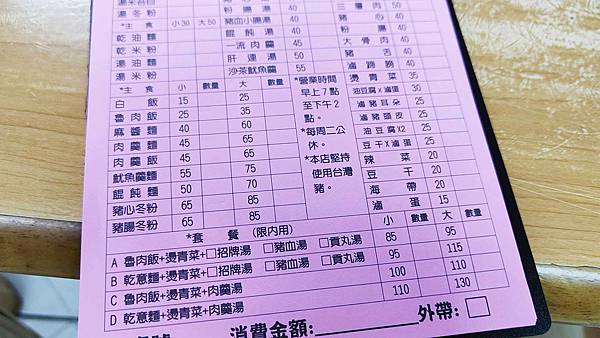 湯米苔目
湯冬粉
*主 食 小30 大50
乾油麵
乾米粉
湯油麵
湯米粉
粉腸湯 40
豬血小腸湯 40
餛飩湯 40
一流肉羹 45
肝連湯 50
沙茶魷魚羹 55
三層肉
豬心 40
粉腸 40
大骨肉 40
豬舌 40
滷蹄膀
*主 食 小 數量 大 數量
白飯 15 25
魯肉飯 25 35
麻醬麵 40 60
肉羹麵 45 65
肉羹飯 45 65
魷魚羹麵 55 75
餛飩麵 50 70
豬心冬粉 65 85
豬腸冬粉 65 85
*營業時間
早上7點
至下午2
點。
*每周二公
休。
*本店堅持
使用台灣
豬。
燙青菜 35
油豆腐x滷蛋 30
滷豬耳朵 25
滷豬頭皮 25
油豆腐X2 25
豆干X滷蛋 25
辣菜 20
豆干 20
海帶 20
滷蛋 15
*套 餐 (限內用) 小 數量 大 數量
A 魯肉飯+燙青菜+□招牌湯 □豬血湯 □貢丸湯 85 95
B 乾意麵+燙青菜+□招牌湯 □豬血湯 □貢丸湯 95 115
C 魯肉飯+燙青菜+肉羹湯 100 110
D 乾意麵+燙青菜+肉羹湯 110 130
消費金額: 外帶:□